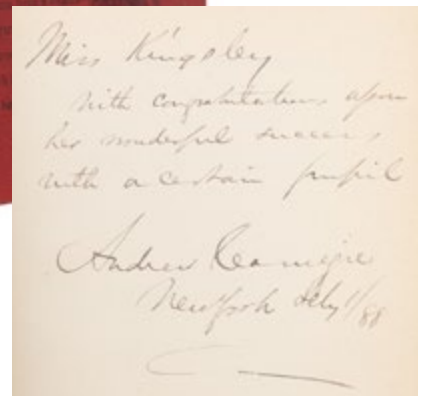 Miss Kingsley
With congratulations upon
her wonderful success
with a certain pupil
Andrew Carnegie
New York July 1/88